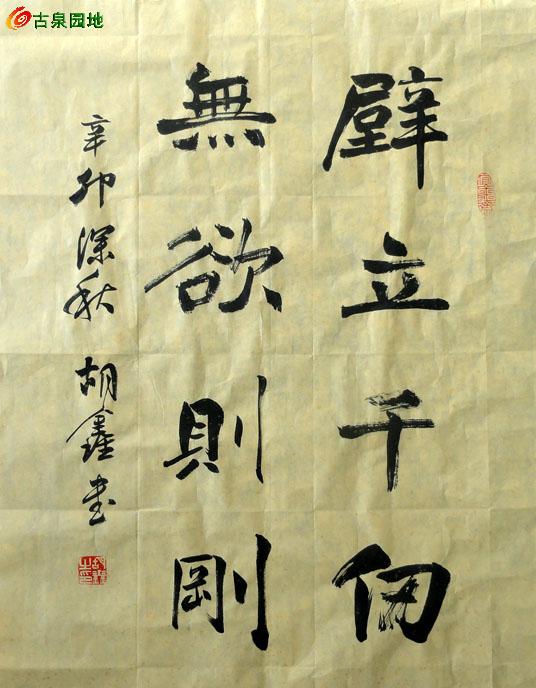 古泉园地
壁立千仞
無欲則剛
辛卯深秋 胡鑫书